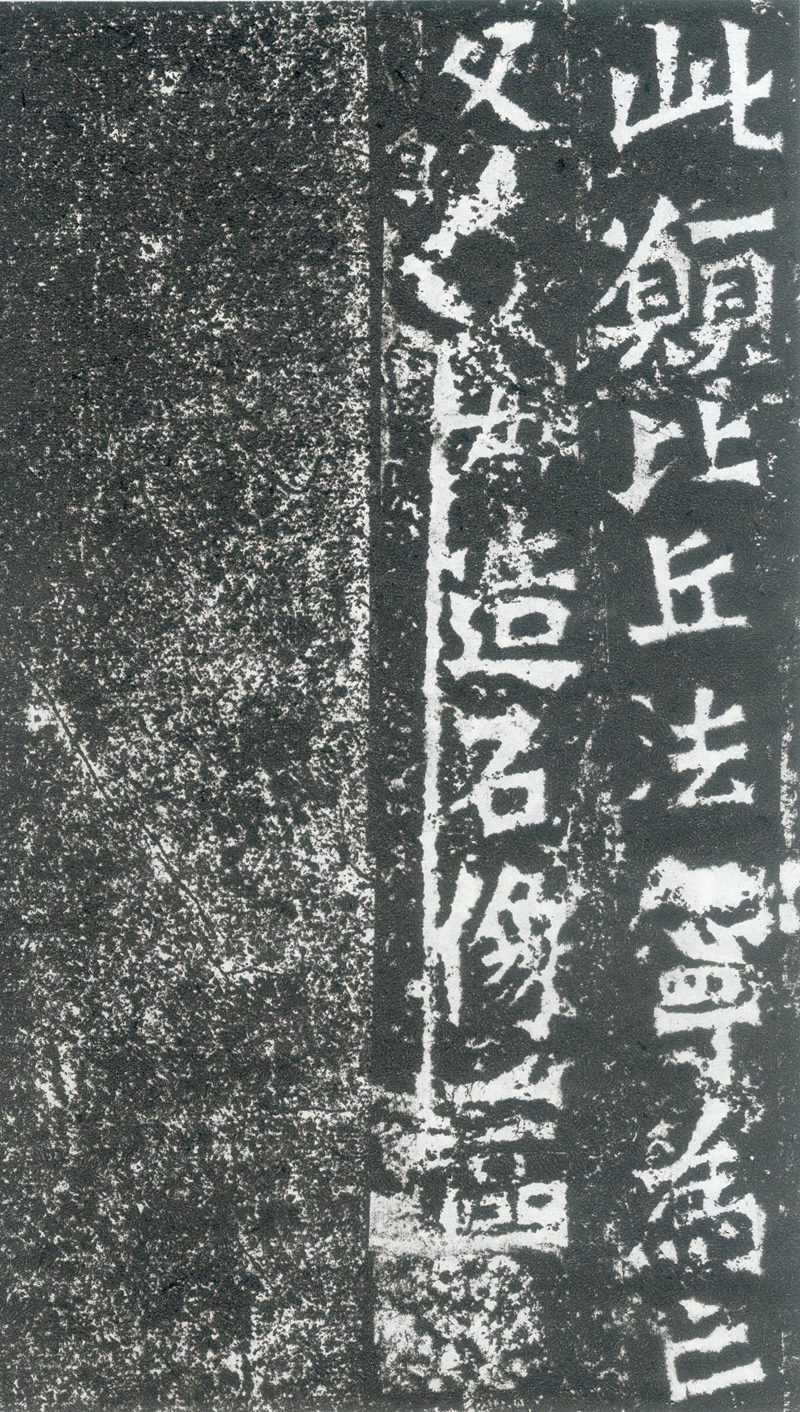 此願比丘法為亡
父母造石像區